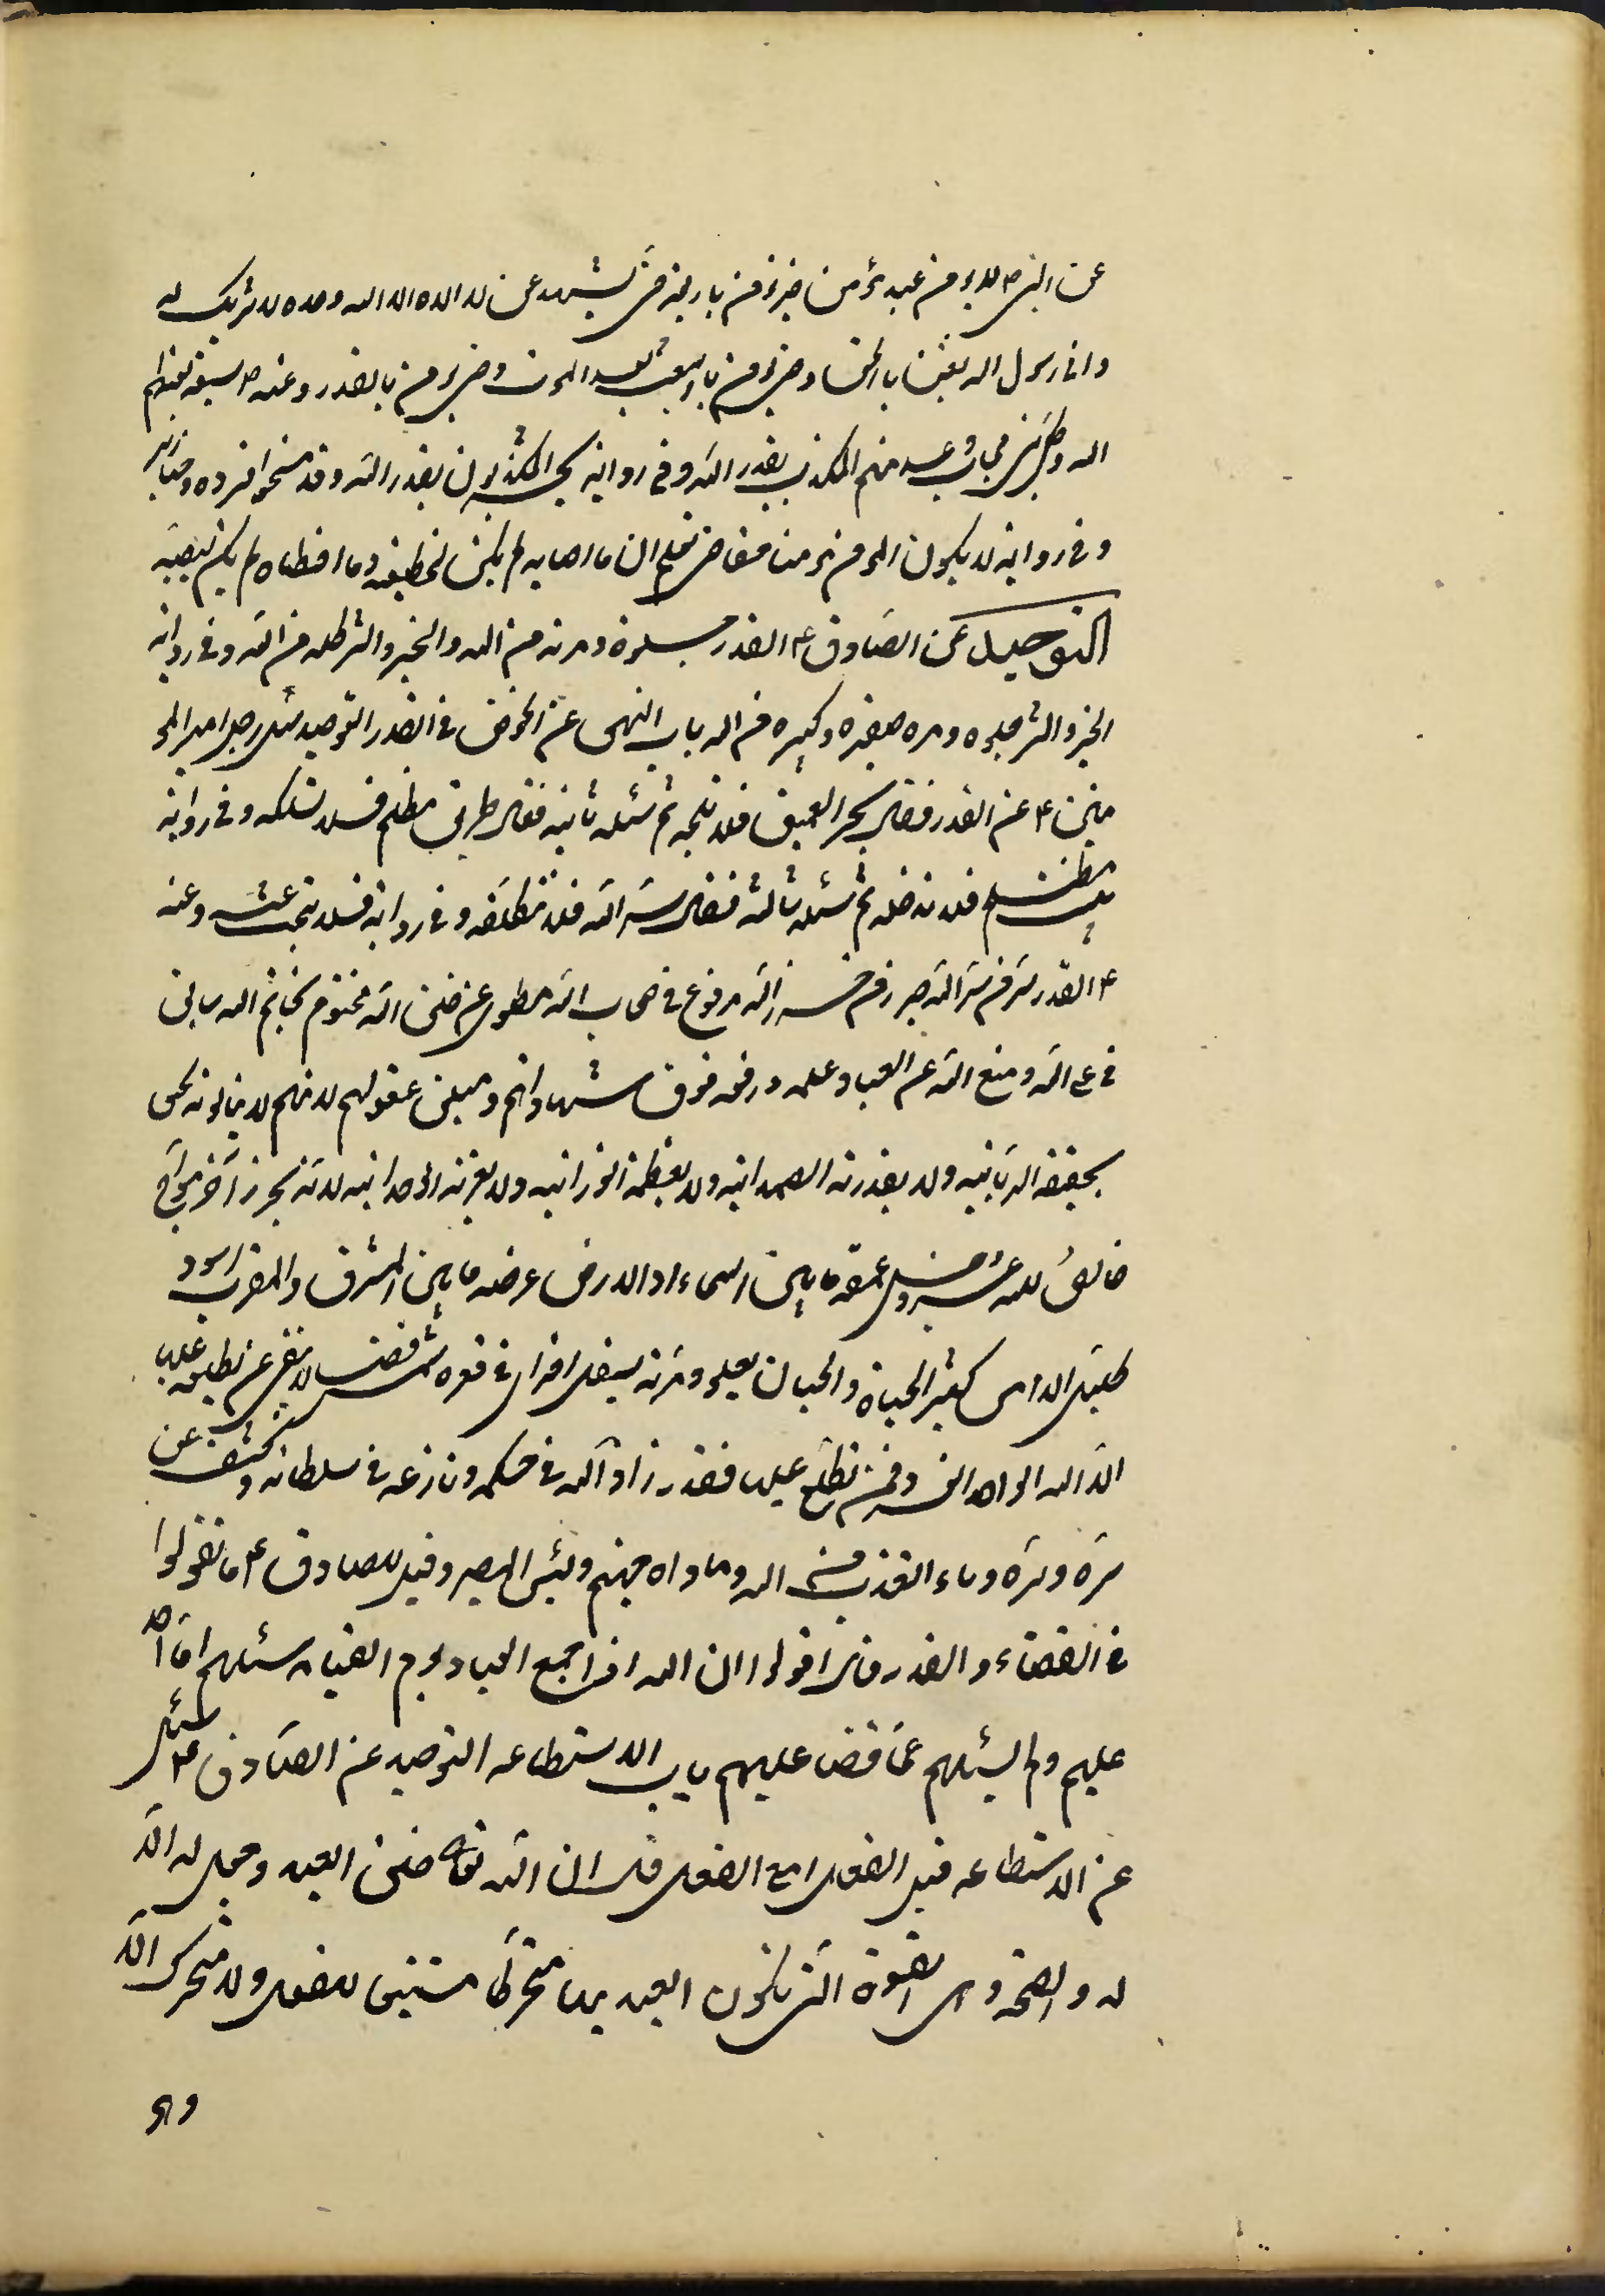 عن النبي ص لا يؤمن عبد مؤمنا حتى يؤمن باربعة حتى يشهد عن لا اله الا الله وحده لا شريك له
واني رسول الله بعثنا بالحق وحتى يؤمن بالبعث بعد الموت وحتى يؤمن بالقدر وعنه ص سبعة لعنهم
الله وكل نبي مجاب عد منهم المكذب بقدر الله وفي رواية يحشر المكذبون بقدر الله وقد مسخوا قردة وخنازير
وفي رواية لا يكون المؤمن مؤمنا حتى تعلم ان ما اصابه لم يكن ليخطيه وما اخطاه لم يكن ليصيبه
التوحيد عن الصادق ع القدر حلوه ومره من الله والخير والشر كله من الله وفي رواية
الخير والشر حلوه ومره صغيره وكبيره من الله باب النهي عن الخوض في القدر التوحيد سئل رجل امير المؤ
منين ع عن القدر فقال بحر العميق فلا تلجه ثم سئله ثانية فقال طريق مظلم فلا تسلكه وفي رواية
مظلم فلا تدخله ثم سئله ثالثة فقال سر الله فلا تتكلفه وفي رواية فلا تبحث عنه وعنه
ع القدر سر من سر الله حرز من حرز الله مرفوع في حجاب الله مطوي عن خلق الله مختوم بخاتم الله سابق
في علم الله وضع الله عن العباد علمه ورفعه فوق شهاداتهم ومبلغ عقولهم لانهم لا ينالونه
بحقيقة الربانيه ولا بقدرته الصمدانيه ولا بعظمة النورانيه ولا بعزته الوحدانيه لانه بحر زاخر مواج
خالص لله عز وجل عمقه ما بين السماء والارض عرضه ما بين المشرق والمغرب اسود
كالليل الدامس كثير الحياة والحيتان يعلو مرة ويسفل اخرى في قعره شمس تضئ لا ينبغي عن يطلع عليها
الا الله الواحد الفرد فمن تطلع عليها فقد زاد الله في حكمه ونازعه في سلطانه وكشف عن
سره وستره وباء بغضب من الله وماواه جهنم وبئس المصير وقيل للصادق ع ما تقولوا
في القضاء والقدر قال اقول ان الله اذا جمع العباد يوم القيامة سئلهم عما عهد
عليهم ولم يسئلهم عما قضا عليهم باب الاستطاعه التوحيد عن الصادق ع سئل
عن الاستطاعه قبل الفعل ام مع الفعل قال ان الله تعالى خلق العبد وجعل له الا
له والصحة وهي القوة التي يكون العبد بها متحركا مستطيعا للفعل ولا متحرك الا
وهو